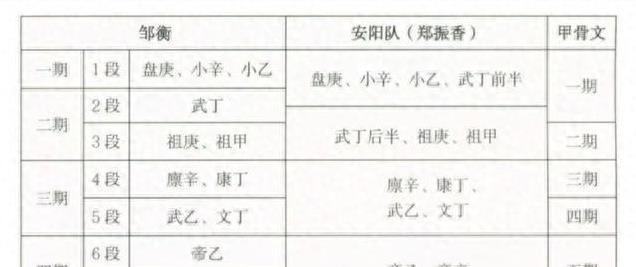 邹衡 安阳队（郑振香） 甲骨文
一期 1段 盘庚、小辛、小乙 盘庚、小辛、小乙、武丁前半 一期
二期 2段 武丁
3段 祖庚、祖甲 武丁后半、祖庚、祖甲 二期
三期 4段 廪辛、康丁 廪辛、康丁、 三期
5段 武乙、文丁 武乙、文丁 四期
6段 帝乙